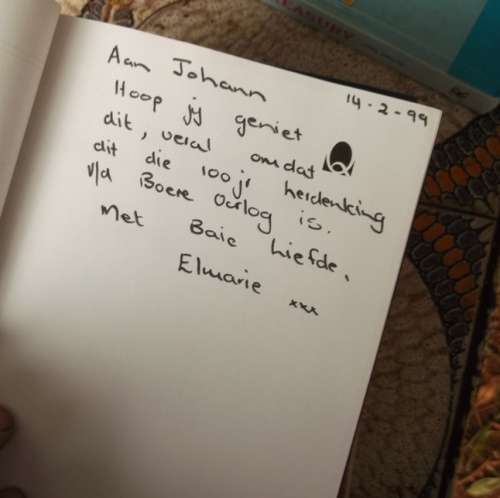 Aan Johann
14-2-99
Hoop jy geniet
dit, veral omdat
dit die 100jr herdenking
v/d Boere Oorlog is.
Met Baie Liefde,
Elmarie xxx